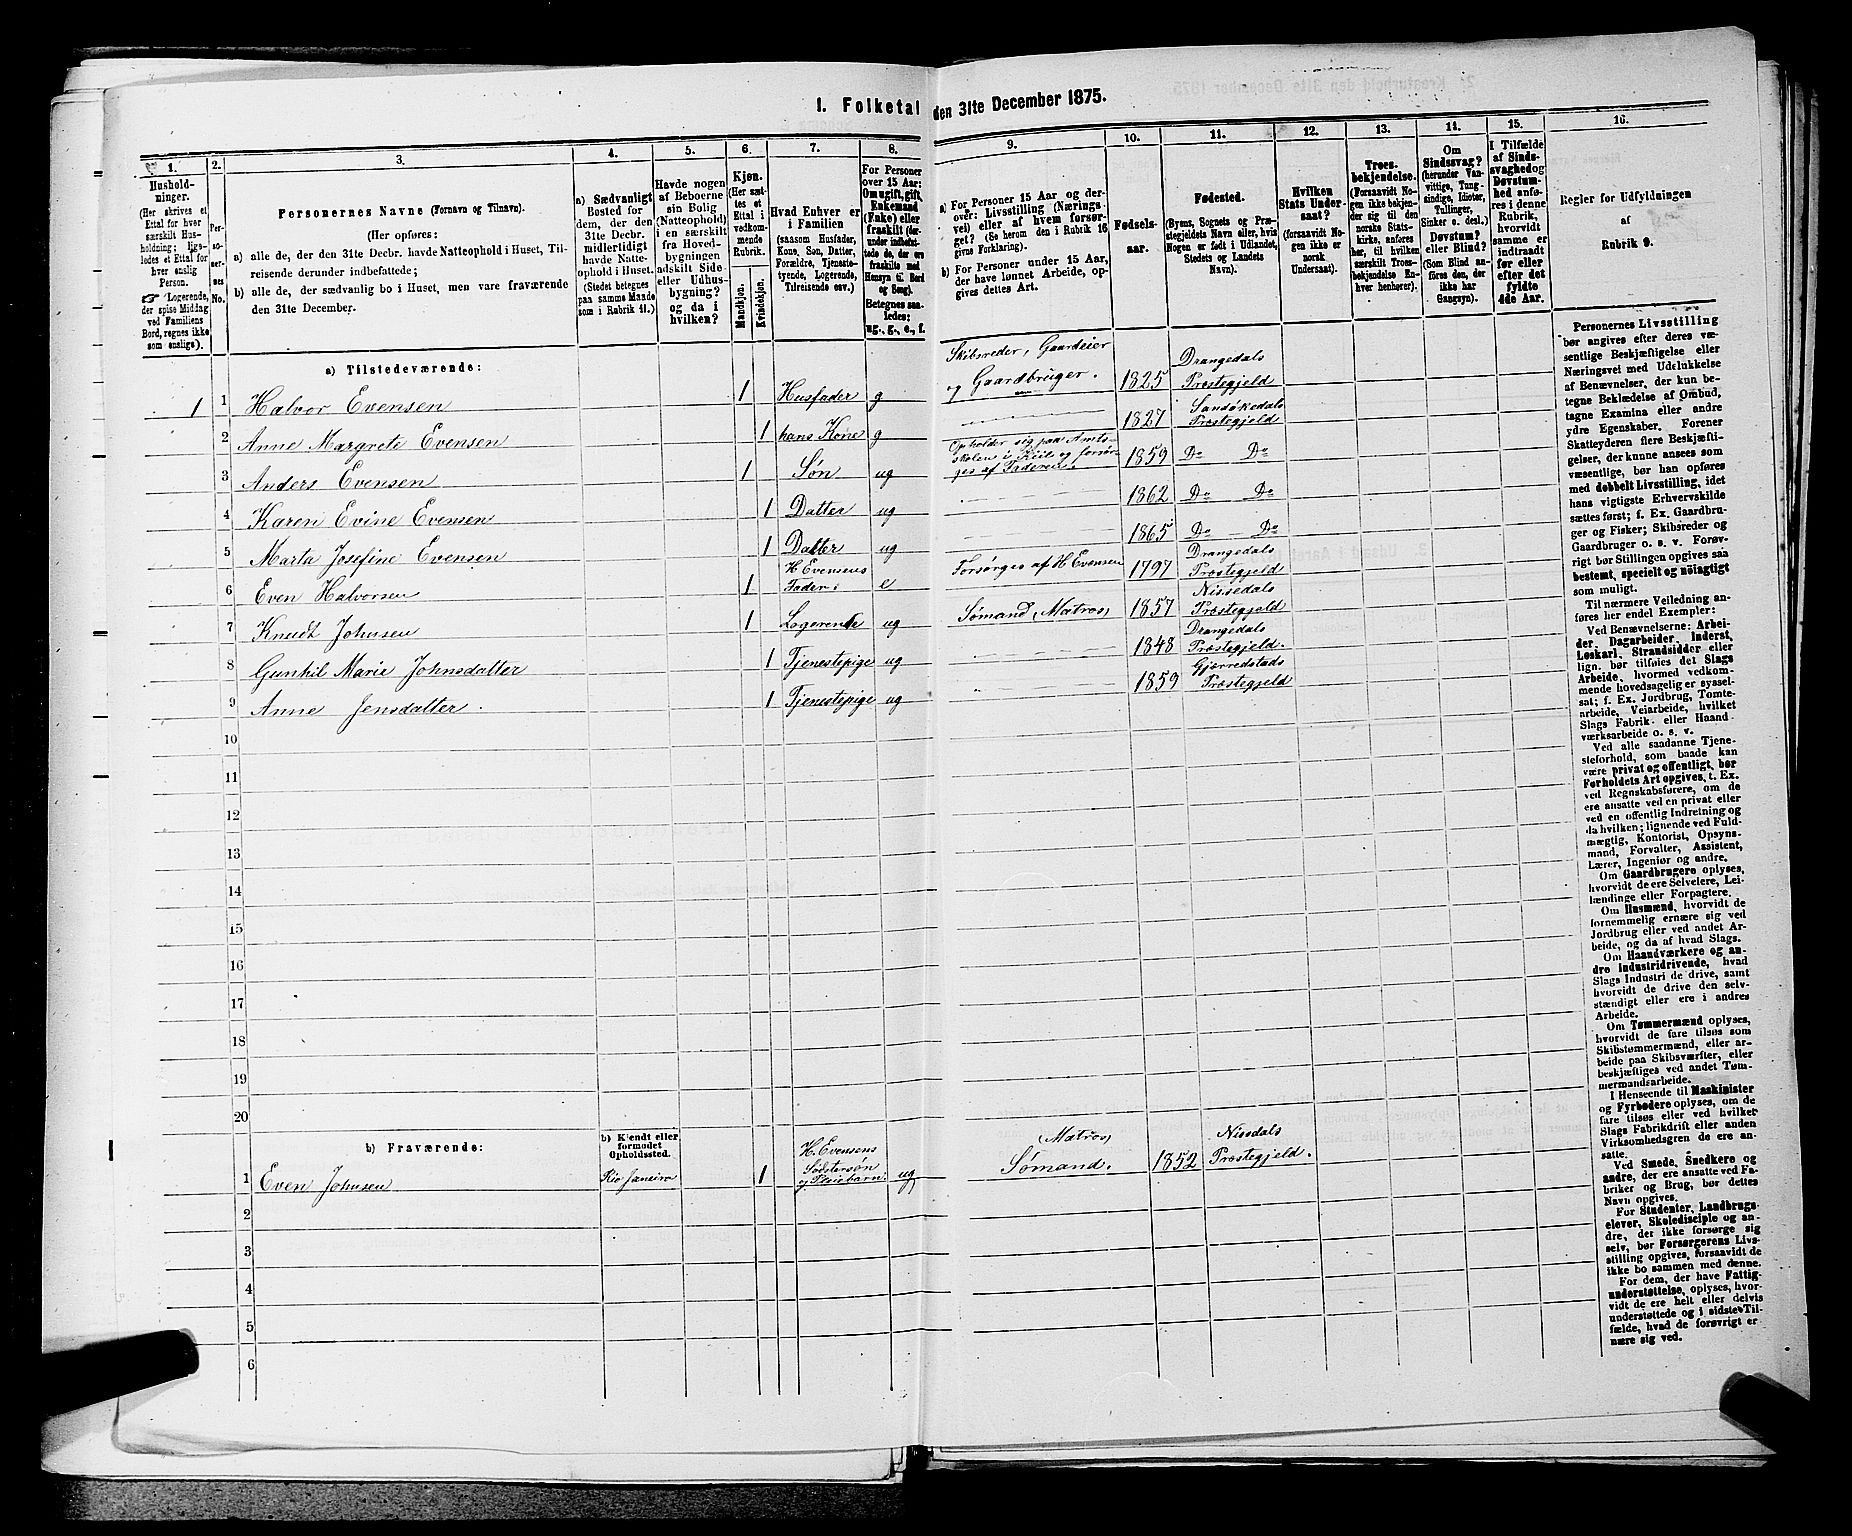 1. Folketal den 31te December 1875.
1. 2. 3. 4. 5. 6. 7. 8. 9. 10. 11. 12. 13. 14. 15. 16.
Hushold-
ninger.
(Her skrives et
Ettal for hver
særskilt Hus-
holdning; lige-
ledes et Ettal for
hver enslig
Person.
☞ Logerende,
der spise Middag
ved Familiens
Bord, regnes ikke
som enslige).
Per-
so-
ner-
nes
No.
Personernes Navne (Fornavn og Tilnavn).
(Her opføres:
a) alle de, der den 31te Decbr. havde Natteophold i Huset, Til-
reisende derunder indbefattede;
b) alle de, der sædvanlig bo i Huset, men vare fraværende
den 31te December.
a) Sædvanligt
Bosted for
dem, der den
31te Decbr.
midlertidigt
havde Natte-
ophold i Huset.
(Stedet betegnes
paa samme Maade
som i Rubrik 11.)
Havde nogen
af Beboerne
sin Bolig
(Natteophold)
i en særskilt
fra Hoved-
bygningen
adskilt Side-
eller Udhus-
bygning?
og da i
hvilken?
Kjøn.
(Her sæt-
tes et
Ettal i
vedkom-
mende
Rubrik.
Mandkjøn.
Kvindekjøn.
Hvad Enhver er
i Familien
(saasom Husfader,
Kone, Søn, Datter,
Forældre, Tjeneste-
tyende, Logerende,
Tilreisende osv.)
For Personer
over 15 Aar:
Om ugift, gift,
Enkemand
(Enke) eller
fraskilt (der-
under indbefat-
tede de, der ere
fraskilte med
Hensyn til Bord
og Seng).
Betegnes saa-
ledes:
ug., g., e., f.
a) For Personer 15 Aar og der-
over: Livsstilling (Nærings-
vei) eller af hvem forsør-
get? (Se herom den i Rubrik 16
givne Forklaring).
b) For Personer under 15 Aar,
der have lønnet Arbeide, op-
gives dettes Art.
Fødsels-
aar.
Fødested.
(Byens, Sognets og Præ-
stegjeldets Navn eller, hvis
Nogen er født i Udlandet,
Stedets og Landets
Navn).
Hvilken
Stats Under-
saat?
(forsaavidt No-
gen ikke er
norsk
Undersaat).
Troes-
bekjendelse.
(Forsaavidt No-
gen ikke bekjen-
der sig til den
norske Stats-
kirke, anføres
her, til hvilken
særskilt Troes-
bekjendelse En-
hver henhører).
Om
Sindssvag?
(herunder Van-
vittige, Tung-
sindige, Idioter,
Tullinger,
Sinker o. desl.)
Døvstum?
eller Blind?
(Som Blind an-
føres den, der
ikke har
Gangsyn).
I Tilfælde
af Sinds-
svaghed og
Døvstum-
hed anfø-
res i denne
Rubrik,
hvorvidt
samme er
indtraadt
før eller
efter det
fyldte
4de Aar.
Regler for Udfyldningen
af
Rubrik 9.
a) Tilstedeværende:
1 1 Halvor Evensen 1 Husfader g Skibsreder, Gaardeier og Gaardbruger. 1825 Drangedals Præstegjeld
2 Anne Margrete Evensen 1 hans Kone g 1827 Sandøkedals Præstegjeld
3 Anders Evensen 1 Søn ug Opholder sig paa Amts-skolen i og forsør-ges af Faderen. 1859 Do Do
4 Karen Evine Evensen 1 Datter ug 1862 Do Do
5 Marta Josefine Evensen 1 Datter ug 1865 Do Do
6 Even Halvorsen 1 H Evensens Fader. e Forsørges af H Evensen 1797 Drangedals Præstegjeld
7 Knudt Johnsen 1 Logerende ug Sømand (Matros) 1857 Nissedals Præstegjeld
8 Gunhil Marie Johnsdatter 1 Tjenestepige ug 1848 Drangedals Præstegjeld.
9 Anne Jensdatter. 1 Tjenestepige ug 1859 Gjerrestads Præstegjeld
10
11
12
13
14
15
16
17
18
19
20
b) Fraværende:
b) Kjendt eller
formodet
Opholdssted.
1 Even Johnsen Rio Janeiro 1 H. Evensens Søstersøn og Pleiebarn. ug (Matros) Sømand. 1852 Nissedals Præstegjeld.
2
3
4
5
6
Personernes Livsstilling
bør angives efter deres væ-
sentlige Beskjæftigelse eller
Næringsvei med Udelukkelse
af Benævnelser, der kun be-
tegne Beklædelse af Ombud,
tagne Examina eller andre
ydre Egenskaber. Forener
Skatteyderen flere Beskjæfti-
gelser, der kunne ansees som
væsentlige, bør han opføres
med dobbelt Livsstilling, idet
hans vigtigste Erhvervskilde
sættes først; f. Ex. Gaardbru-
ger og Fisker; Skibsreder og
Gaardbruger o. s. v. Forøv-
rigt bør Stillingen opgives saa
bestemt, specielt og nöiagtigt
som muligt.
Til nærmere Veiledning an-
føres her endel Exempler:
Ved Benævnelserne: Arbei-
der, Dagarbeider, Inderst,
Løskarl, Strandsidder eller
lign. bør tilføies det Slags
Arbeide, hvormed vedkom-
mende hovedsagelig er syssel-
sat; f. Ex. Jordbrug, Tomte-
arbeide, Veiarbeide, hvilket
Slags Fabrik- eller Haand-
værksarbeide o. s. v.
Ved alle saadanne Tjene-
steforhold, som baade kan
være privat og offentligt, bør
Forholdets Art opgives, t. Ex.
ved Regnskabsførere, om de
ere ansatte ved en privat eller
ved en offentlig Indretning og
da hvilken; lignende ved Fuld-
mægtig, Kontorist, Opsyns-
mand, Forvalter, Assistent,
Lærer, Ingeniør og andre.
Om Gaardbrugere oplyses,
hvorvidt de ere Selveiere, Lei-
lændinge eller Forpagtere.
Om Husmænd, hvorvidt de
fornemmelig ernære sig ved
Jordbrug eller ved andet Ar-
beide, og da af hvad Slags.
Om Haandværkere og an-
dre Industridrivende, hvad
Slags Industri de drive, samt
hvorvidt de drive den selv-
stændigt eller ere i andres
Arbeide.
Om Tømmermænd oplyses,
hvorvidt de fare tilsøs som
Skibstømmermænd, eller ar-
beide paa Skibsværfter, eller
beskjæftiges ved andet Tøm-
mermandsarbeide.
I Henseende til Maskinister
og Fyrbødere oplyses, om de
fare tilsøs eller ved hvilket
Slags Fabrikdrift eller anden
Virksomhedsgren de ere an-
satte.
Ved Smede, Snedkere og
andre, der ere ansatte ved Fa-
briker og Brug, bør dettes
Navn opgives.
For Studenter, Landbrugs-
elever, Skoledisciple og an-
dre, der ikke forsørge sig
selv, bør Forsørgerens Livs-
stilling opgives, forsaavidt de
ikke bo sammen med denne.
For dem, der have Fattig-
understøttelse, oplyses, hvor-
vidt de ere helt eller delvis
understøttede og i sidste Til-
fælde, hvad de forøvrigt er-
nære sig ved.